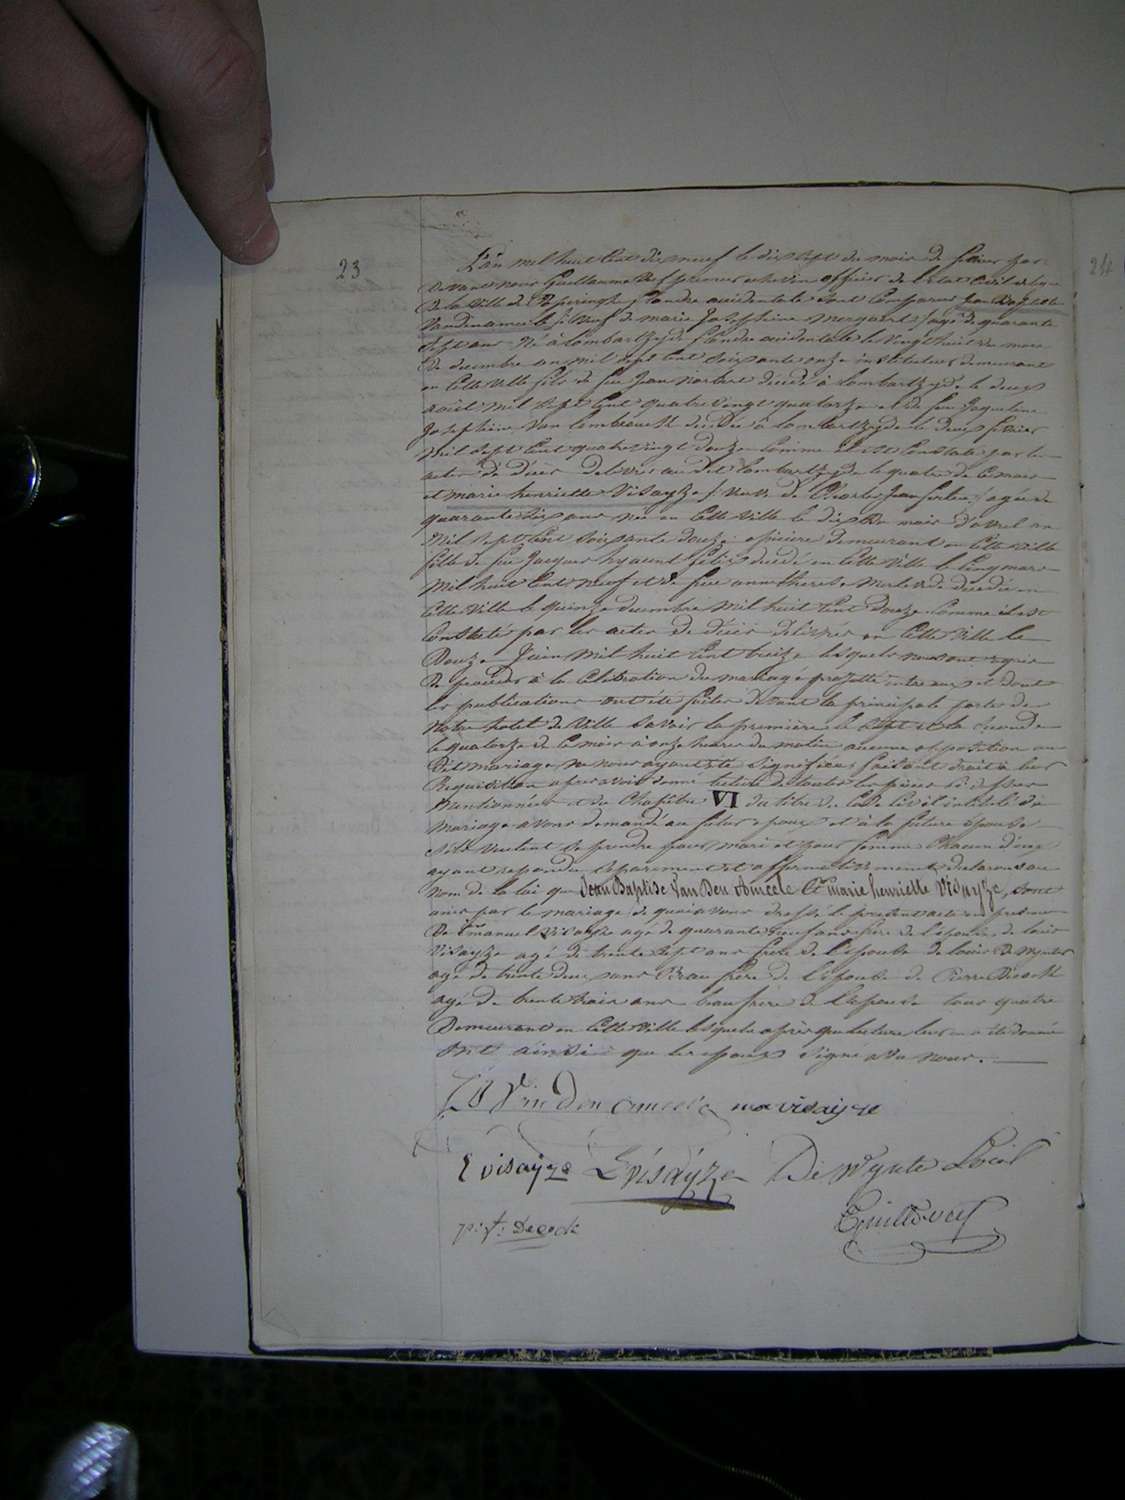 23
L'an mil huit cent dix neuf le dix sept du mois de fevrier par
devant nous Guillaume premier echevin officier de l'etat civil
de la ville de Poperinghe flandre occidentale sont comparus Jean Baptiste
Vandenameele veuf de marie Josephine agé de quarante
sept ans né à Lombartzyde flandre occidentale le vingt huit du mois
de decembre an mil sept cent soixante onze instituteur demeurant
en cette ville fils de feu Jean decedé à Lombartzyde le deux
aout mil sept cent quatre vingt quatorze et de feu Jaqueline
Josephine Van decedée à Lombartzyde le deux fevrier
mil sept cent quatre vingt douze comme il est constaté par les
actes de décès delivrés au dit Lombartzyde le quatre de ce mois
et marie henriette Visayze veuve de Charles Jean agée de
quarante six ans née en cette ville le dix du mois d'avril an
mil sept cent soixante douze epiciere demeurant en cette ville
fille de feu Jacques hyacint felix decedé en cette ville le cinq mars
mil huit cent neuf et de feue anne therese decedée en
cette ville le quinze decembre mil huit cent douze comme il est
constaté par les actes de décès delivrés en cette ville le
douze Juin mil huit cent treize lesquels nous ont requis
de proceder à la celebration du mariage projetté entre eux et dont
les publications ont été faites devant la principale porte de
notre hotel de ville savoir la premiere le sept et la seconde
le quatorze de ce mois à onze heures du matin aucune opposition au
dit mariage ne nous ayant été signifiée faisant droit à leur
requisition apres avoir donné lecture de toutes les pieces ci dessus
mentionnées et du chapitre VI du titre du Code Civil intitulé du
mariage avons demandé au futur epoux et à la future epouse
s'ils veulent se prendre pour mari et pour femme chacun d'eux
ayant repondu separement et affirmativement declarons au
nom de la loi que Jean Baptise Van Den Ameele Et marie henriette Visayze, sont
unis par le mariage de quoi avons dressé le present acte en presence
de Emanuel Visayze agé de quarante neuf ans frere de l'epouse de louis
Visayze agé de trente sept ans frere de l'epouse de louis De Wynter
agé de trente deux ans beau frere de l'epouse de Pierre Decock
agé de trente trois ans beau frere de l'epouse tous quatre
demeurant en cette ville lesquels après que lecture leur en a été donnée
ont ainsi que les epoux signé avec nous.
Van Den Ameele m visayze
E visayze L visayze De Wynter
p: f: Decock
24